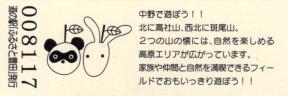 中野で遊ぼう！！
北に高社山、西北に斑尾山。
２つの山の懐には、自然を楽しめる
高原エリアが広がっています。
家族や仲間と自然を満喫できるフィー
ルドでおもいっきり遊ぼう！！
0081117
道の駅「ふるさと豊田」発行